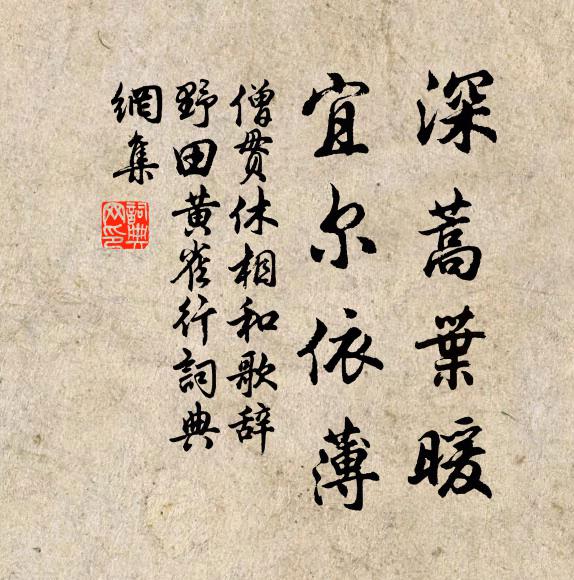 深蒿葉暖
宜尔依薄
僧贯休相和歌辞
野田黄雀行詞典
網集
詞典
网印